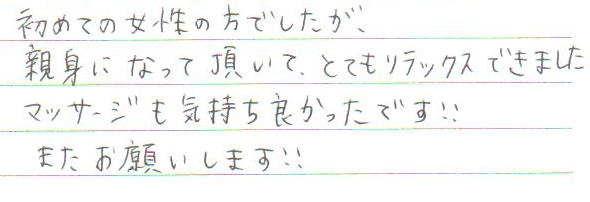 初めての女性の方でしたが、
親身になって頂いて、とてもリラックスできました
マッサージも気持ち良かったです!!
またお願いします!!